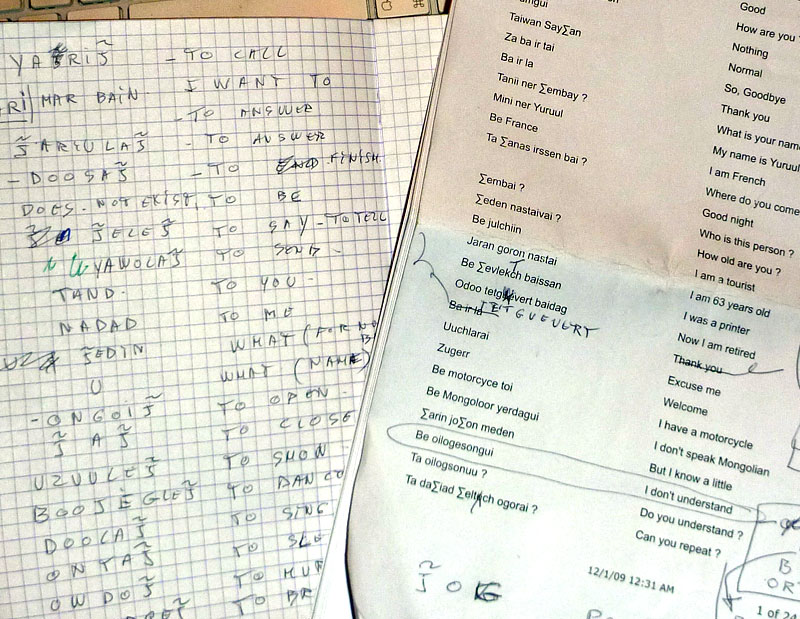 YASRIJ̃ - TO CALL
RI MAR BAIN. I WANT TO
- TO ANSWER
J̃ARYULAJ̃ - TO ANSWER
- DOOSAJ̃ - TO FINISH
DOES. NOT EXIST, TO BE
J̃ELEJ̃ TO SAY - TO TELL
YAWOLAJ̃ TO SEND -
TAND. TO YOU -
NADAD TO ME
J̃EDIN WHAT (FOR
U WHAT (NAME)
- ONGOIJ̃ TO OPEN -
J̃AJ̃ TO CLOSE
UZUULEJ̃ TO SHOW
BOOJEGLEJ̃ TO DANC
DOOLAJ̃ TO SING
ONTAJ̃ TO SLE
OWDOJ̃ TO HUR
TO BE
Good
Taiwan SayΣan How are you
Za ba ir tai Nothing
Ba ir la Normal
Tanii ner Σembay ? So, Goodbye
Mini ner Yuruul Thank you
Be France What is your nam
Ta Σanas irssen bai ? My name is Yuruul
I am French
Where do you come
Σembai ? Good night
Σeden nastaivai ? Who is this person ?
Be julchiin How old are you ?
Jaran goron nastai I am a tourist
Be Σevlekch baissan I am 63 years old
Odoo tetgvert baidag I was a printer
Ba ir la TETGUEVERT Now I am retired
Uuchlarai Thank you
Zugerr Excuse me
Be motorcyce toi Welcome
Be Mongoloor yerdagui I have a motorcycle
Σarin joΣon meden I don't speak Mongolian
Be oilogesongui But I know a little
Ta oilogsonuu ? I don't understand
Ta daΣiad Σeltch ogorai ? Do you understand ?
Can you repeat ?
12/1/09 12:31 AM
J̃OG
B
OR
1 of 24